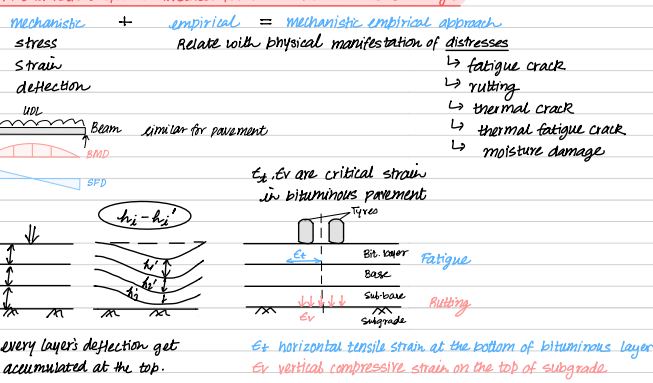 mechanistic + empirical = mechanistic empirical approach
stress
strain
deflection
Relate with physical manifestation of distresses
↳ fatigue crack
↳ rutting
↳ thermal crack
↳ thermal fatigue crack
↳ moisture damage
UDL
Beam similar for pavement
BMD
SFD
Et, Ev are critical strain
in bituminous pavement
hi - hi'
Tyres
Et
Bit. layer
Fatigue
Base
Sub-base
Rutting
Ev
Subgrade
every layer's deflection get
accumulated at the top.
Et horizontal tensile strain at the bottom of bituminous layer
Ev vertical compressive strain on the top of subgrade